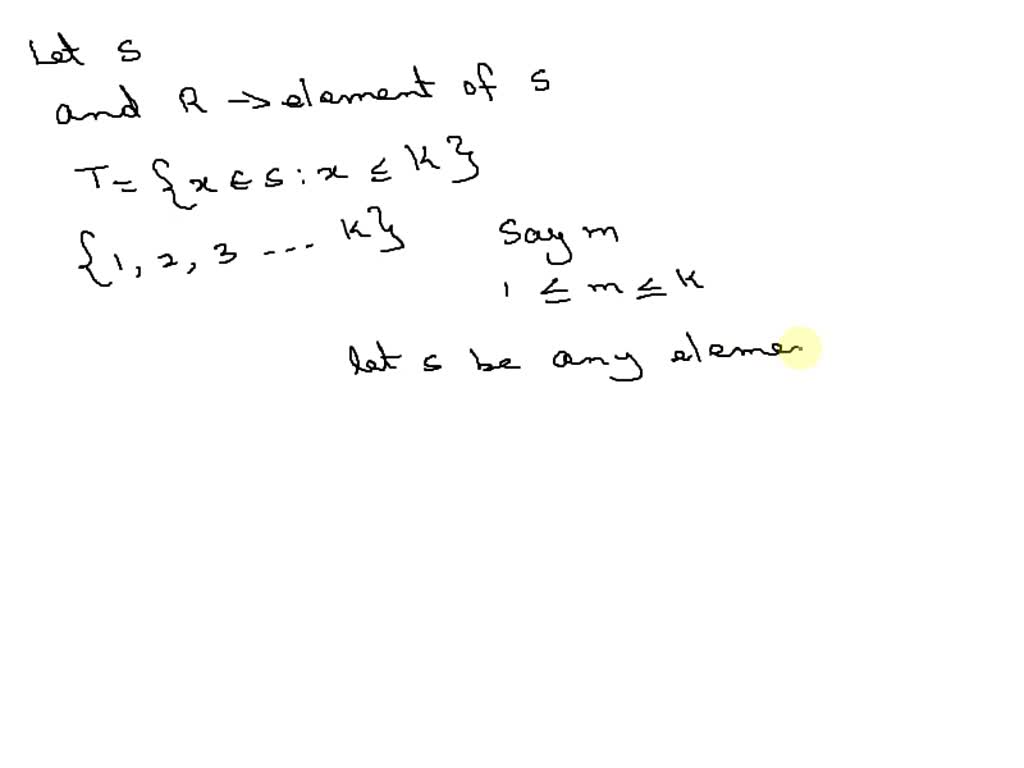 Let S
and R → element of S
T = {x ∈ S : x ≤ K}
{1, 2, 3 --- K}
Say m
1 ≤ m ≤ K
let s be any elemen